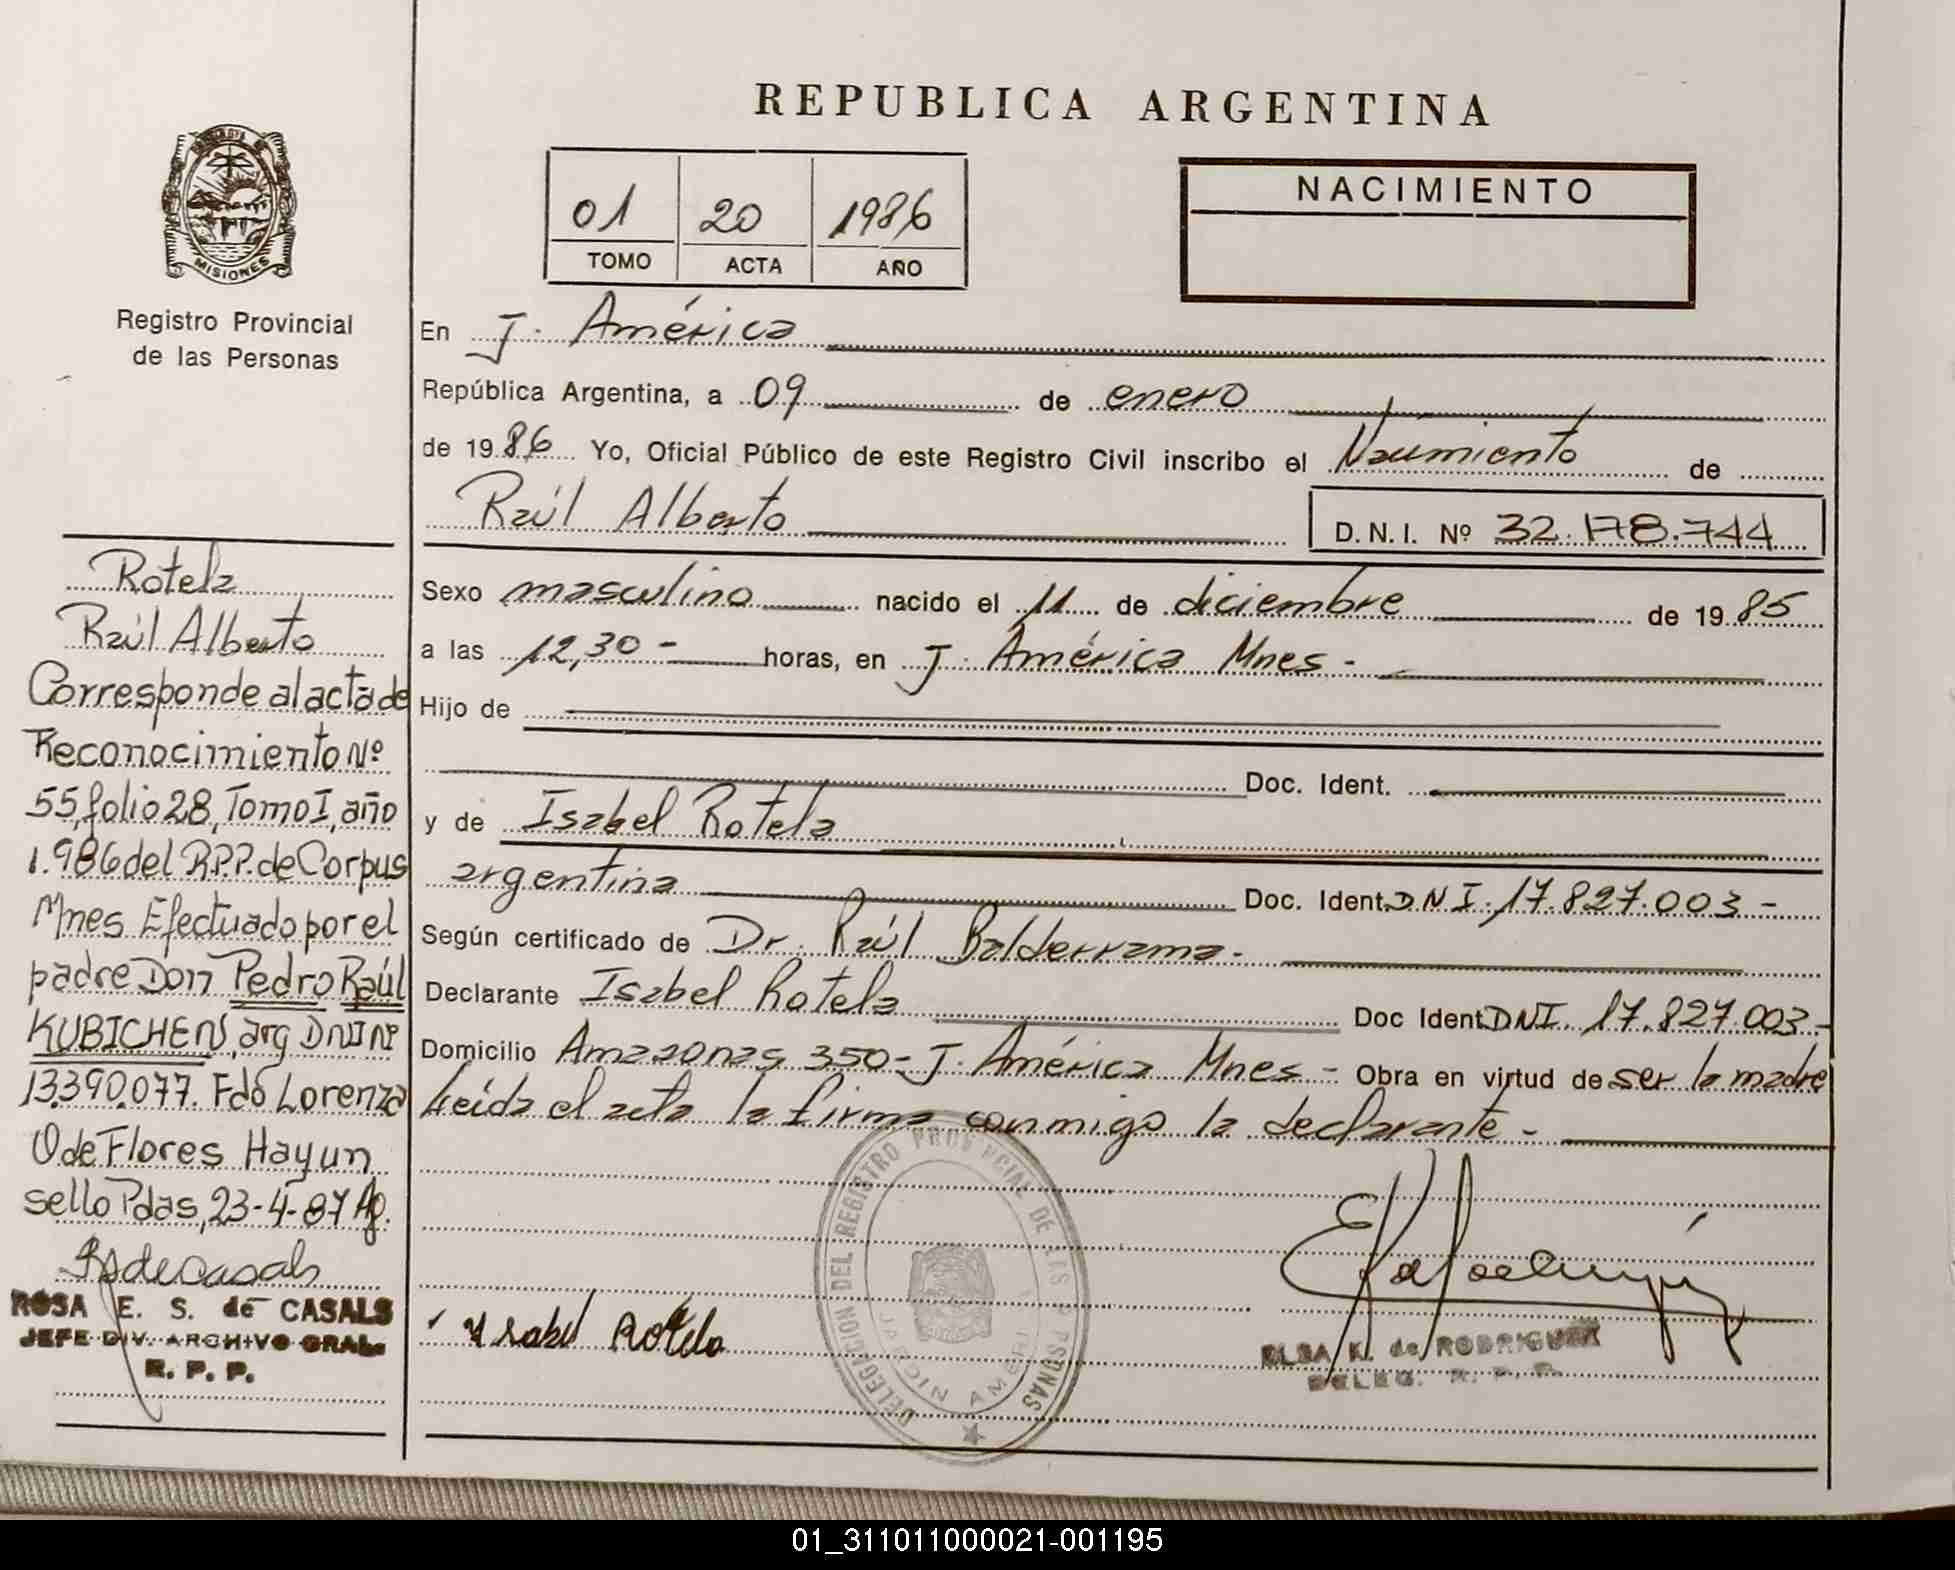 REPUBLICA ARGENTINA
01 20 1986
TOMO ACTA AÑO
NACIMIENTO
MISIONES
Registro Provincial
de las Personas
En J. América
República Argentina, a 09 de enero
de 1986 Yo, Oficial Público de este Registro Civil inscribo el Nacimiento de
Raúl Alberto
D.N.I. Nº 32.178.744
Sexo masculino nacido el 11 de diciembre de 1985
a las 12,30 - horas, en J. América Mnes -
Hijo de
Doc. Ident.
y de Isabel Rotela
argentina Doc. Ident. DNI. 17.827.003 -
Según certificado de Dr. Raúl Balderrama -
Declarante Isabel Rotela Doc Ident DNI. 17.827.003 -
Domicilio Amazonas 350 - J. América Mnes - Obra en virtud de ser la madre
Leída el acta la firma conmigo la declarante -
Ysabel Rotela
DELEGACION DEL REGISTRO PROVINCIAL DE LAS PSONAS
JARDIN AMERI
ELSA K. de RODRIGUEZ
DELEG. R. P. P.
Rotela
Raúl Alberto
Corresponde al acta de
Reconocimiento Nº
55, folio 28, Tomo I, año
1.986 del R.P.P. de Corpus
Mnes Efectuado por el
padre Don Pedro Raúl
KUBICHEN, arg DNI Nº
13.390.077. Fdo Lorenza
O de Flores Hay un
sello Pdas, 23-4-87 Ag.
RSdeCasals
ROSA E. S. de CASALS
JEFE DIV. ARCHIVO GRAL.
R. P. P.
01_311011000021-001195